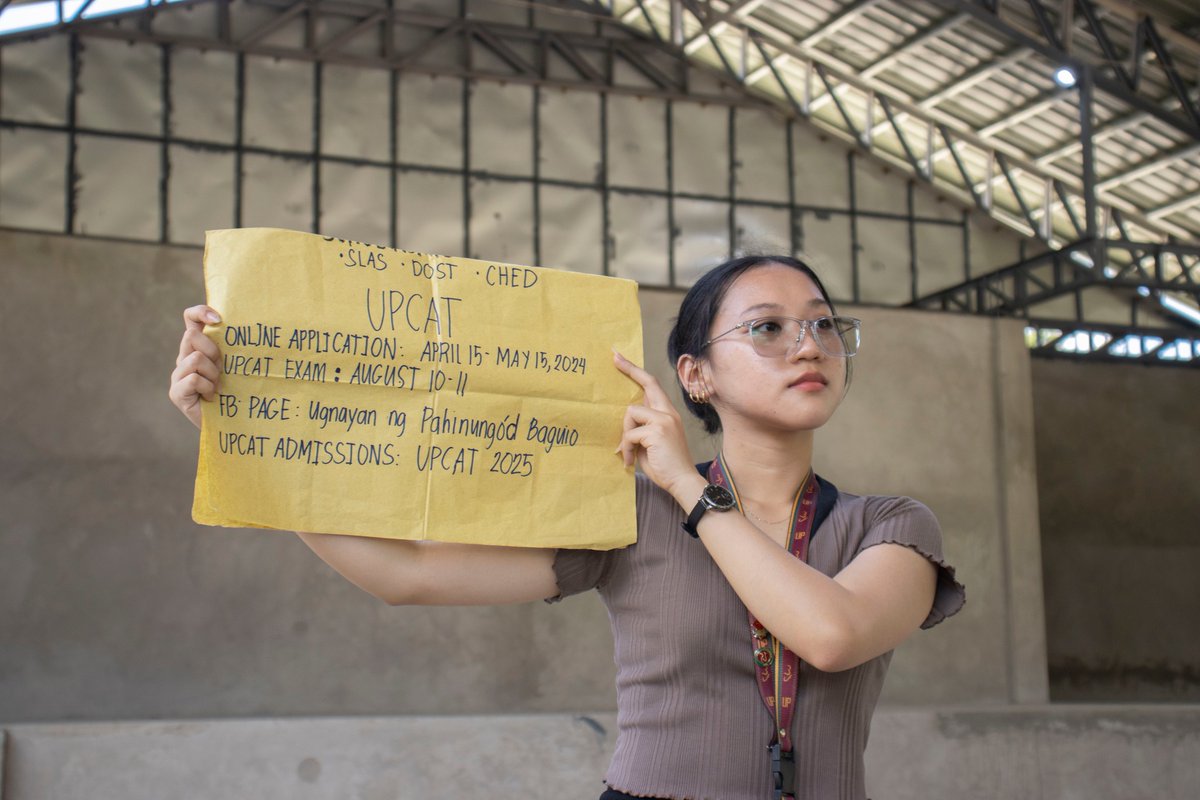 · SLAS · DOST · CHED
UPCAT
ONLINE APPLICATION: APRIL 15 - MAY 15, 2024
UPCAT EXAM: AUGUST 10-11
FB PAGE: Ugnayan ng Pahinungód Baguio
UPCAT ADMISSIONS: UPCAT 2025
UP
UP